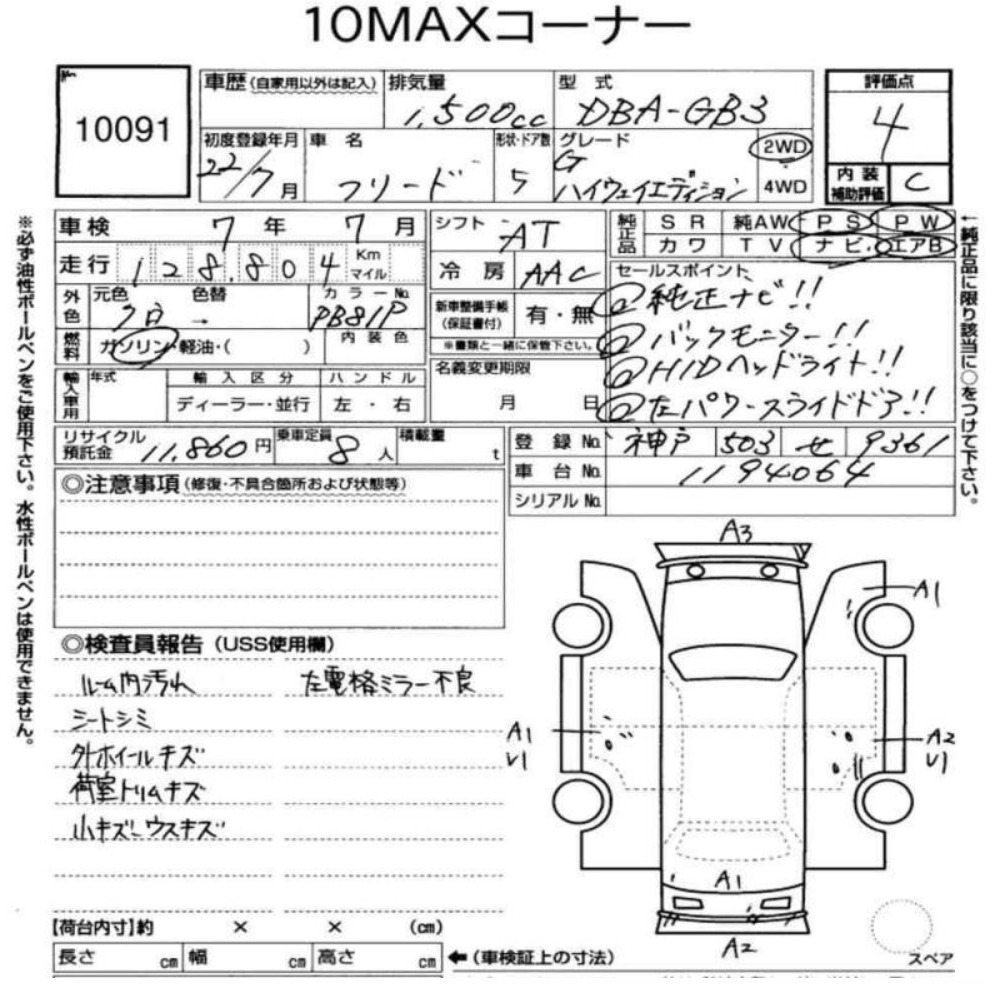 10MAXコーナー
10091
車歴 (自家用以外は記入)
排気量
1,500cc
型式
DBA-GB3
評価点
4
初度登録年月
22/7月
車名
フリード
形状・ドア数
5
グレード
G
ハイウェイエディション
2WD
4WD
内装
補助評価
C
車検 7年 7月
シフト AT
純正品
SR 純AW PS PW
カワ TV ナビ・エアB
走行 128.804 Km マイル
冷房 AAC
セールスポイント
@純正ナビ!!
@バックモニター!!
@HIDヘッドライト!!
@左パワースライドドア!!
外色
元色
色替
→
カラーNo.
PB81P
新車整備手帳
(保証書付)
有・無
※書類と一緒に保管下さい。
燃料
ガソリン・軽油・( )
内装色
名義変更期限
月 日
輸入車用
年式
輸入区分
ディーラー・並行
ハンドル
左・右
リサイクル
預託金
11,860円
乗車定員
8人
積載量
t
登録No. 神戸 503 せ 9361
車台No. 1194064
シリアルNo.
◎注意事項 (修復・不具合箇所および状態等)
◎検査員報告 (USS使用欄)
ルーム内汚れ
左電格ミラー不良
シートシミ
外ホイールキズ
荷室トリムキズ
小キズ・ウスキズ
A3
A1
A1
V1
A2
V1
A1
A2
【荷台内寸】約 × × (cm)
長さ cm 幅 cm 高さ cm
←(車検証上の寸法)
スペア
※必ず油性ボールペンをご使用下さい。水性ボールペンは使用できません。
↑純正品に限り該当に○をつけて下さい。